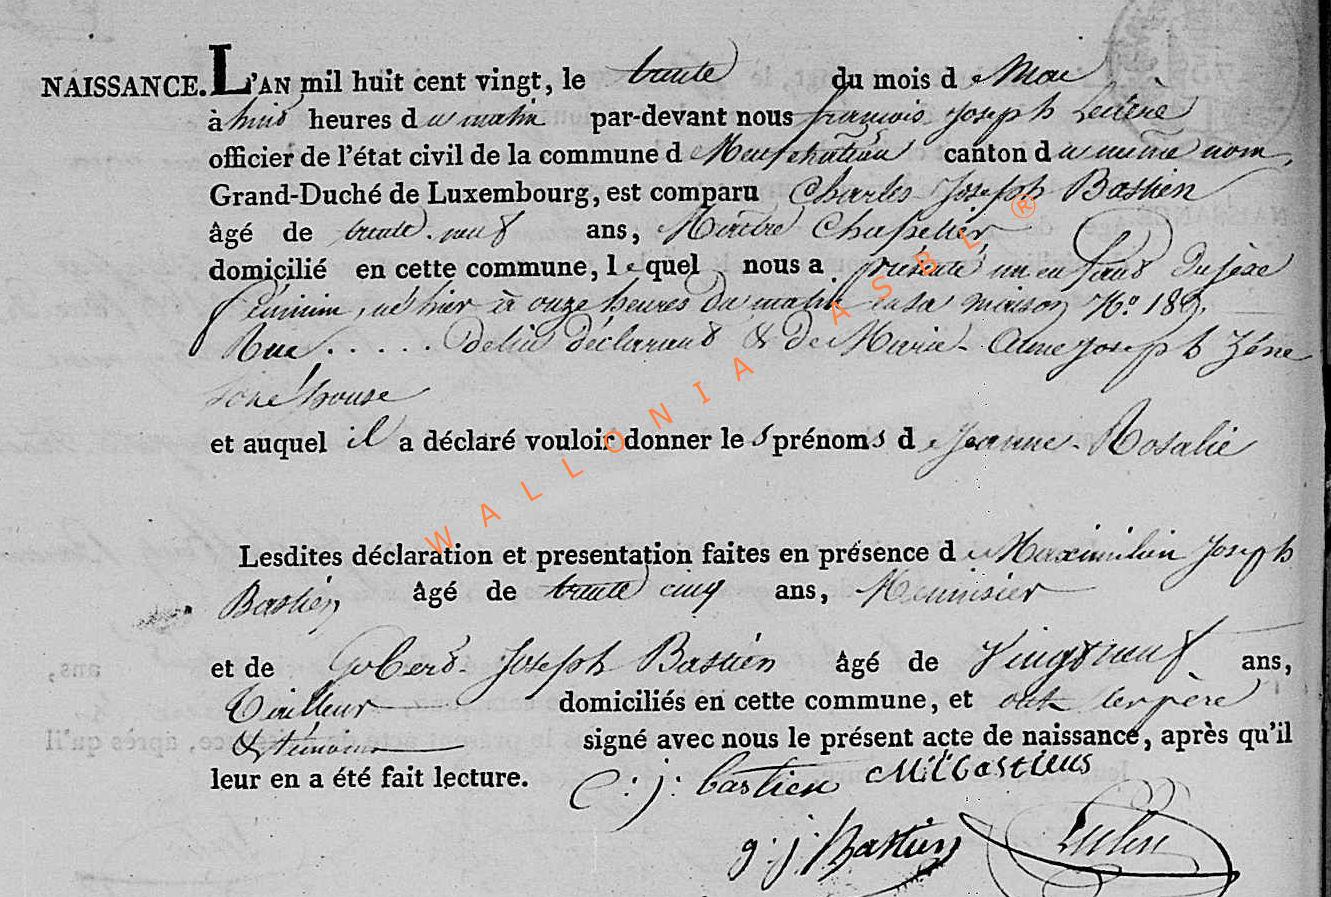 NAISSANCE. L'AN mil huit cent vingt, le trente du mois de Mai
à huit heures du matin par-devant nous françois Joseph
officier de l'état civil de la commune de Neufchâteau canton du même nom,
Grand-Duché de Luxembourg, est comparu Charles Joseph Bastien
âgé de trente neuf ans, Maitre Chapelier
domicilié en cette commune, lequel nous a présenté un enfant du sèxe
féminin, né hier à onze heures du matin en sa maison N.o 189.
Rue ..... de lui déclarant & de Marie Anne Joseph
son épouse
et auquel il a déclaré vouloir donner les prénoms de Jeanne Rosalie
Lesdites déclaration et presentation faites en présence de Maximilien Joseph
Bastien âgé de trente cinq ans, Menuisier
et de Gobert Joseph Bastien âgé de Vingt neuf ans,
Tailleur domiciliés en cette commune, et ont les père
& témoins signé avec nous le présent acte de naissance, après qu'il
leur en a été fait lecture. C: j: bastien
g: j: Bastien
WALLONIA ASBL ®